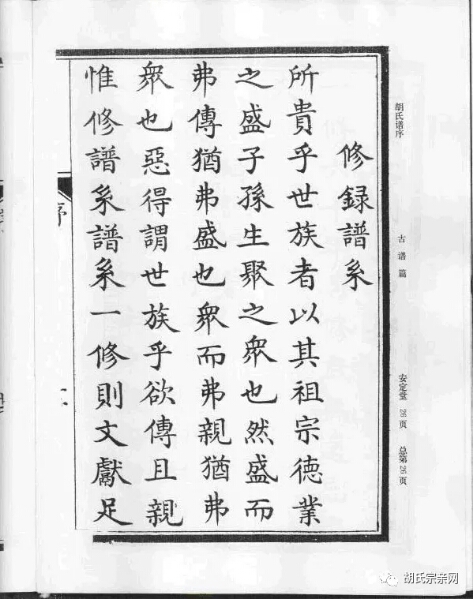 胡氏谱序
古谱篇
安定堂 26页 总第26页
修録譜系
所貴乎世族者以其祖宗德業
之盛子孫生聚之衆也然盛而
弗傳猶弗盛也衆而弗親猶弗
衆也惡得謂世族乎欲傳且親
惟修譜系譜系一修則文獻足
序
胡氏宗亲网